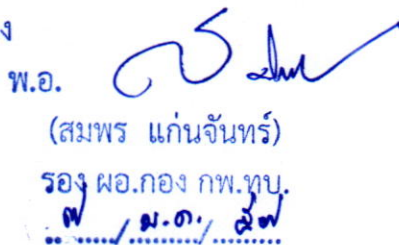 ง
พ.อ.
(สมพร แก่นจันทร์)
รอง ผอ.กอง กพ.ทบ.
/ ม.ค. /